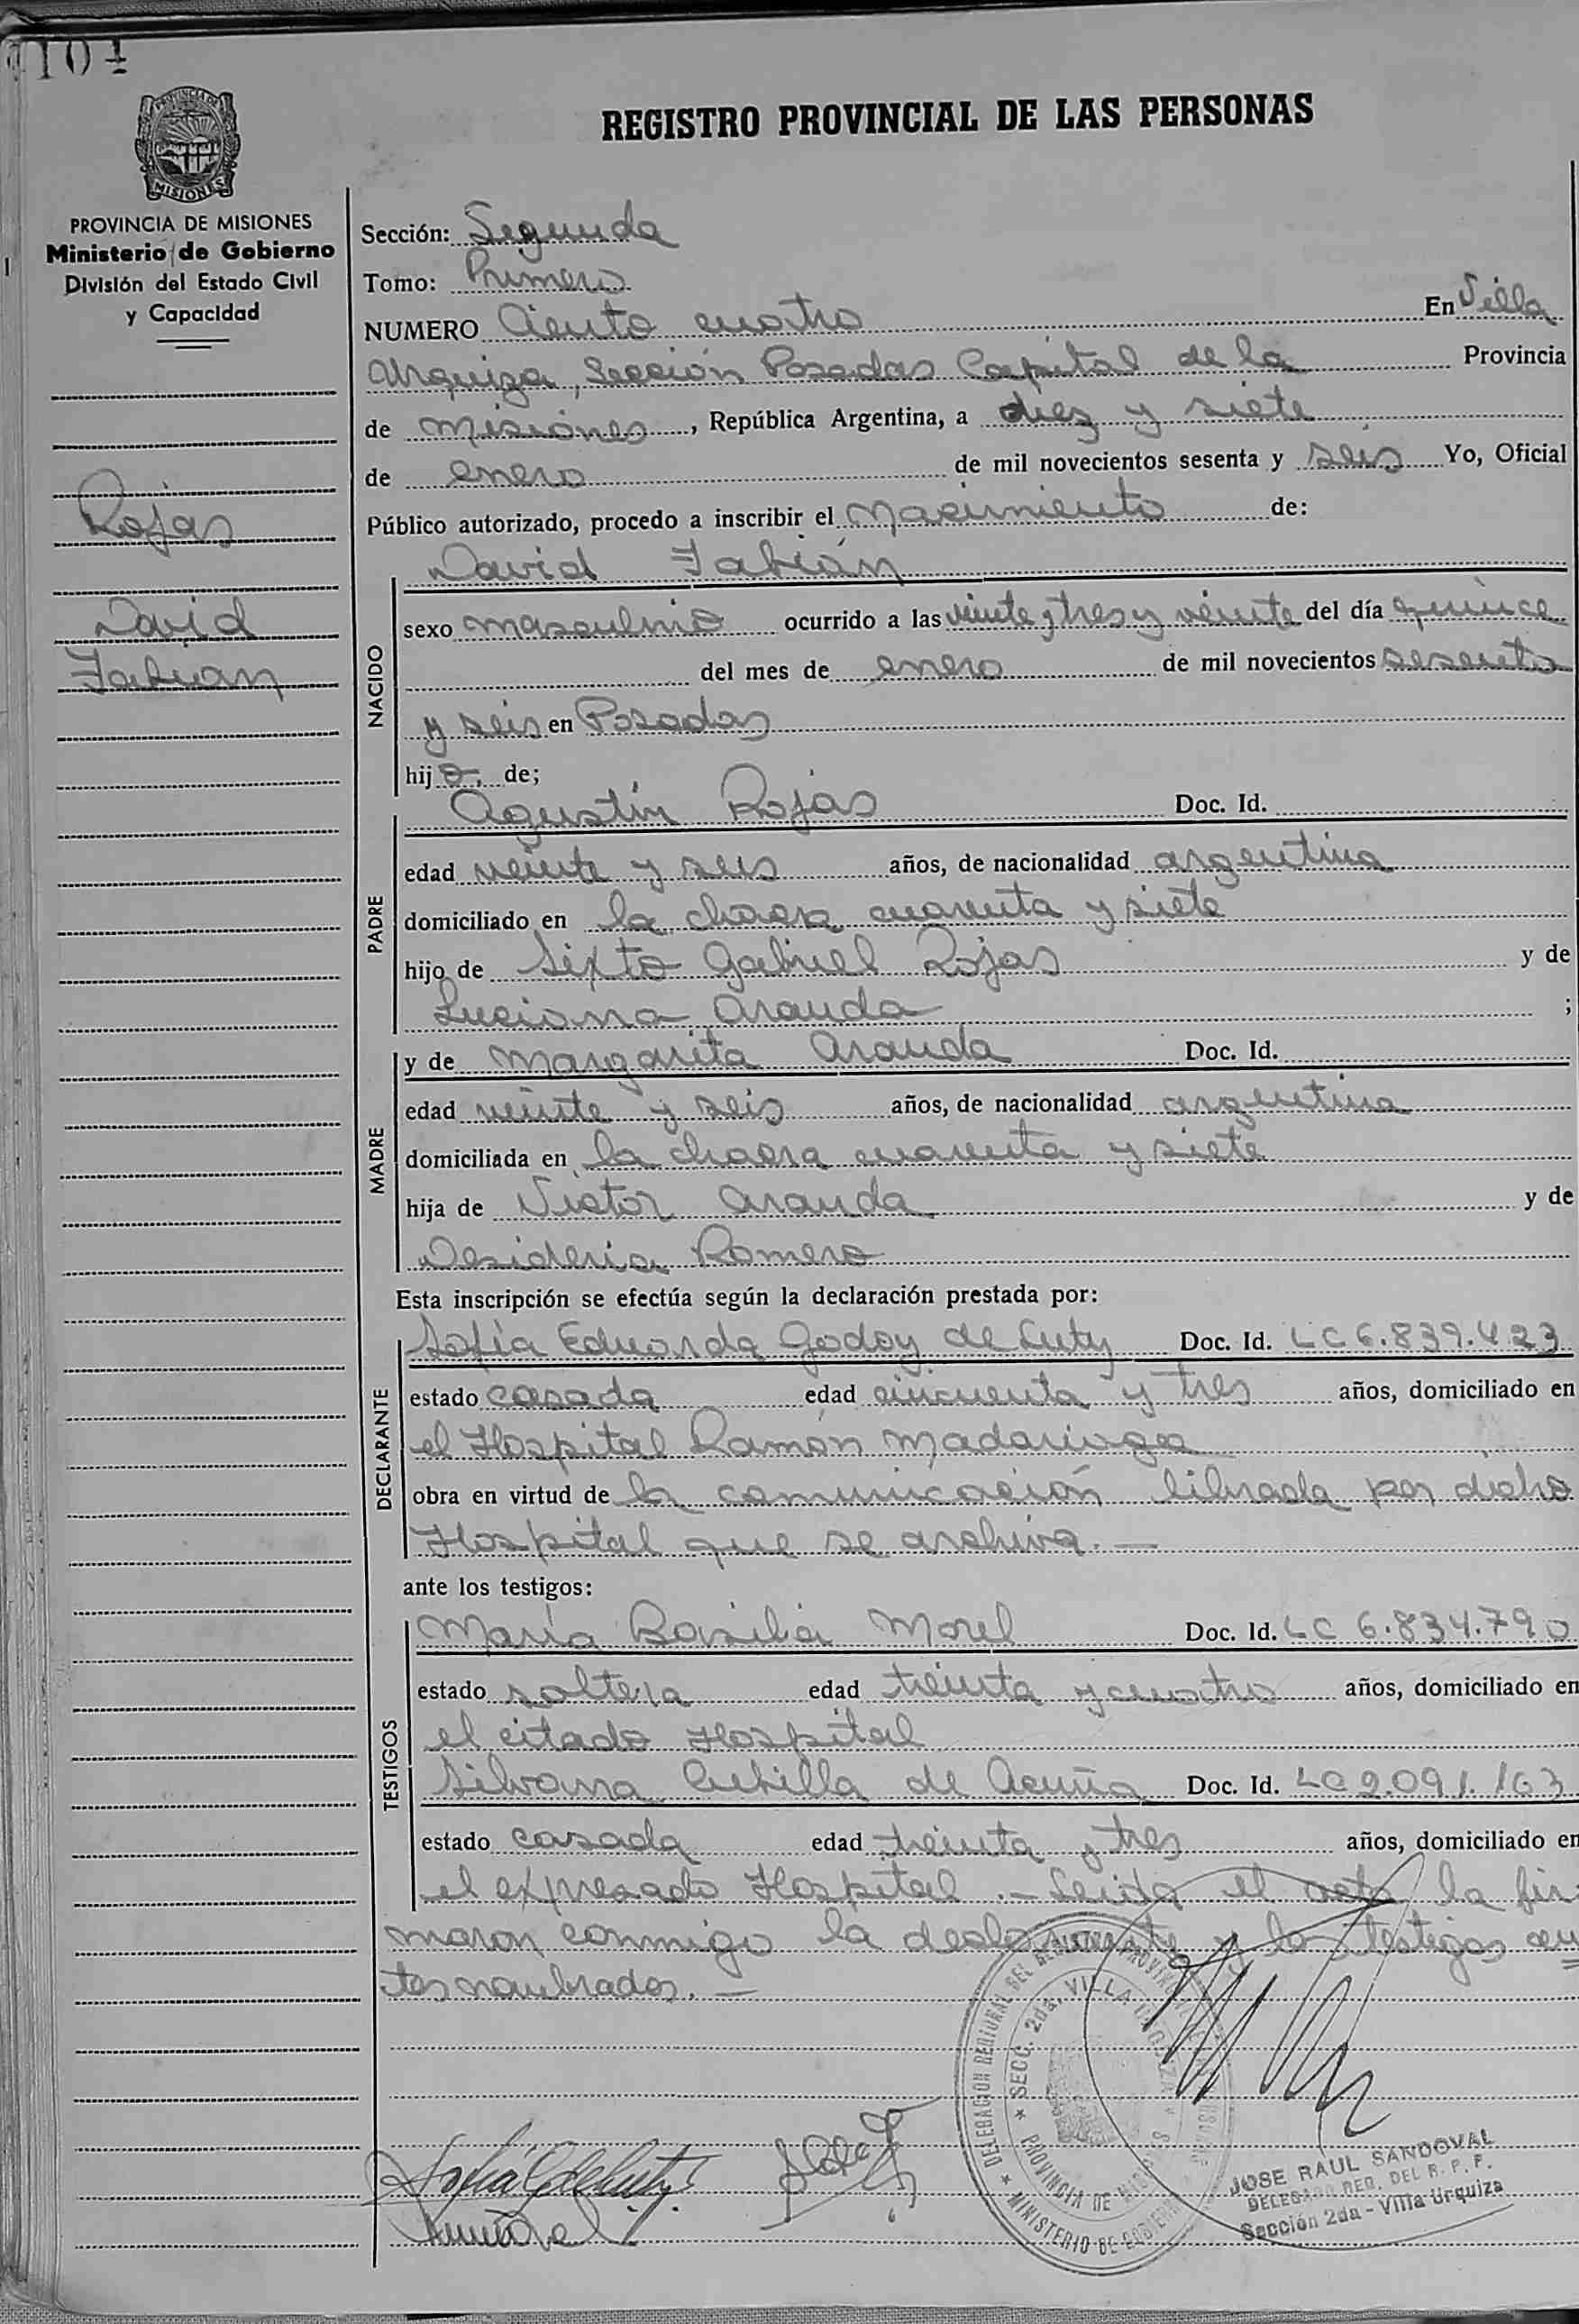 104
REGISTRO PROVINCIAL DE LAS PERSONAS
MISIONES
PROVINCIA DE MISIONES
Ministerio de Gobierno
División del Estado Civil
y Capacidad
Rojas
David
Fabian
Sección: Segunda
Tomo: Primero
NUMERO Ciento cuatro En Villa
Urquiza, Sección Posadas Capital de la Provincia
de Misiones, República Argentina, a diez y siete
de enero de mil novecientos sesenta y seis Yo, Oficial
Público autorizado, procedo a inscribir el Nacimiento de:
NACIDO
David Fabián
sexo masculino ocurrido a las veinte y tres y veinte del día quince
del mes de enero de mil novecientos sesenta
y seis en Posadas
hijo. de;
PADRE
Agustín Rojas Doc. Id.
edad veinte y seis años, de nacionalidad argentina
domiciliado en la chacra cuarenta y siete
hijo de Sixto Gabriel Rojas y de
Luciana Aranda ;
MADRE
y de Margarita Aranda Doc. Id.
edad veinte y seis años, de nacionalidad argentina
domiciliada en la chacra cuarenta y siete
hija de Victor Aranda y de
Desideria Romero
Esta inscripción se efectúa según la declaración prestada por:
DECLARANTE
Sofía Eduarda Godoy de Luty Doc. Id. LC 6.839.423
estado casada edad cincuenta y tres años, domiciliado en
el Hospital Ramón Madariaga
obra en virtud de la comunicación librada por dicho
Hospital que se archiva. —
ante los testigos:
TESTIGOS
María Basilia Morel Doc. Id. LC 6.834.790
estado soltera edad treinta y cuatro años, domiciliado en
el citado Hospital
Silvana Cubilla de Acuña Doc. Id. LC 2.091.163
estado casada edad treinta y tres años, domiciliado en
el expresado Hospital .— Leida el acta la fir
maron conmigo la declarante y los testigos an
tes nombrados. —
DELEGACION REGIONAL DEL REGISTRO PROVINCIAL
MINISTERIO DE GOBIERNO
SECC. 2da. VILLA URQUIZA
PROVINCIA DE MISIONES
JOSE RAUL SANDOVAL
DELEGADO REG. DEL R. P. P.
Sección 2da - Villa Urquiza